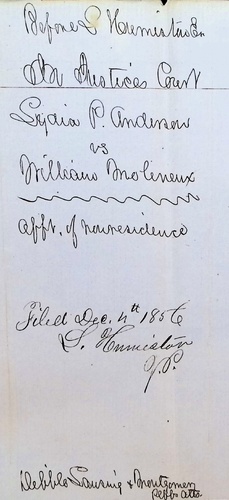 Before L Humiston Esq
In Justices Court
Lydia P. Anderson
vs
William Molineux
Afft. of nonresidence
Filed Dec. 4th 1856
L. Humiston
J.P.
Dibble Lansing & Montgomery
Plffs Attos